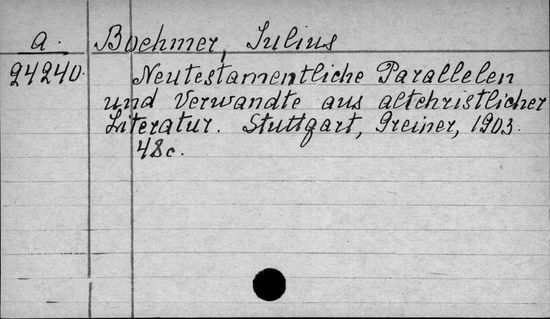 a. Boehmer, Julius
24240. Neutestamentliche Parallelen
und Verwandte aus altchristlicher
Literatur. Stuttgart, Greiner, 1903.
48c.